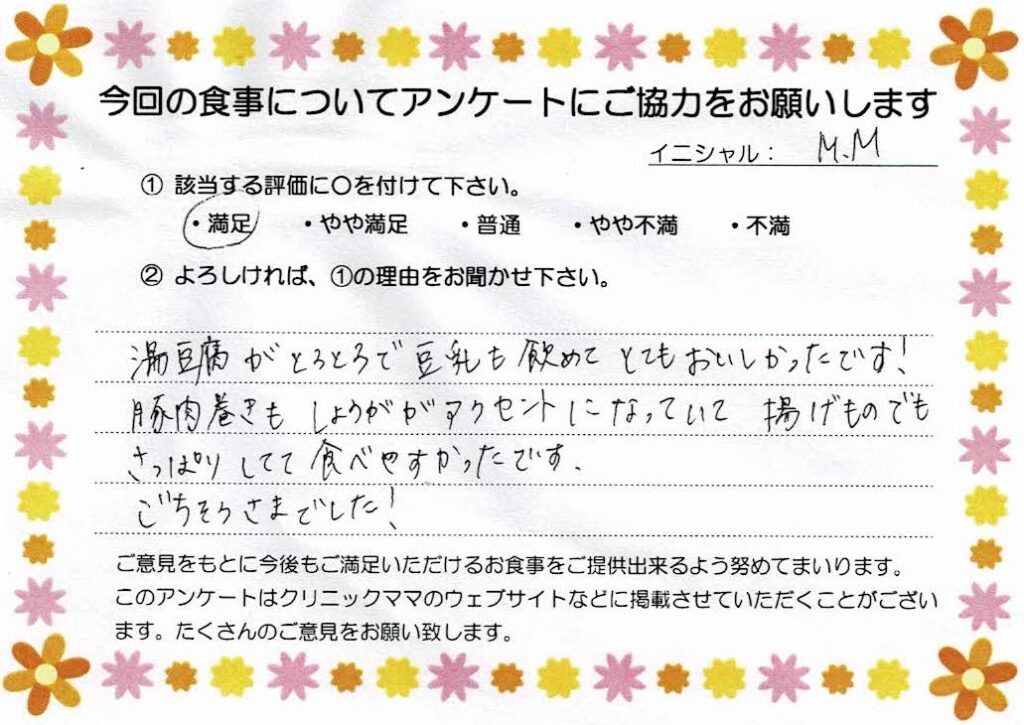 今回の食事についてアンケートにご協力をお願いします
イニシャル： M.M
① 該当する評価に〇を付けて下さい。
・満足 ・やや満足 ・普通 ・やや不満 ・不満
② よろしければ、①の理由をお聞かせ下さい。
湯豆腐がとろとろで豆乳も飲めてとてもおいしかったです！
豚肉巻きも しょうががアクセントになっていて 揚げものでも
さっぱりしてて食べやすかったです.
ごちそうさまでした！
ご意見をもとに今後もご満足いただけるお食事をご提供出来るよう努めてまいります。
このアンケートはクリニックママのウェブサイトなどに掲載させていただくことがござい
ます。たくさんのご意見をお願い致します。